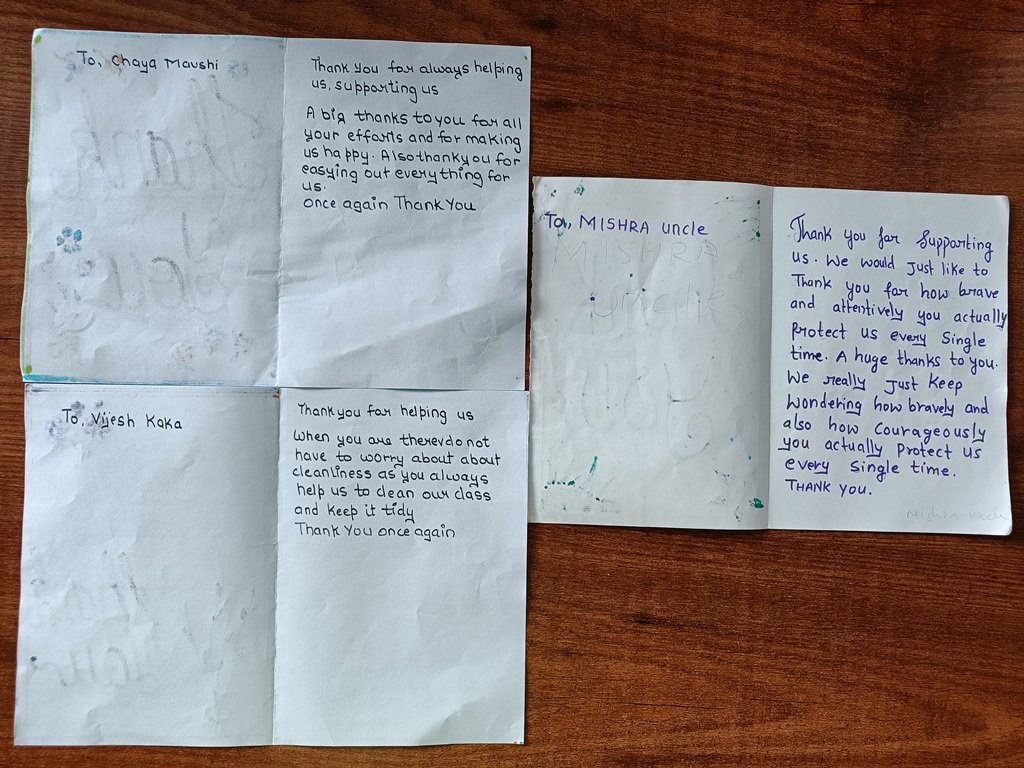 To, Chaya Maushi
Thank you for always helping
us, supporting us
A big thanks to you for all
your efforts and for making
us happy. Also thankyou for
easying out everything for
us.
once again Thank You
To, Vijesh Kaka
Thank you for helping us
When you are there do not
have to worry about about
cleanliness as you always
help us to clean our class
and keep it tidy
Thank You once again
To, MISHRA uncle
MISHRA
uncle
Thank you for Supporting
us. We would just like to
Thank you for how brave
and attentively you actually
protect us every Single
time. A huge thanks to you.
We really just keep
Wondering how bravely and
also how Courageously
you actually Protect us
every single time.
THANK YOU.
Mishra